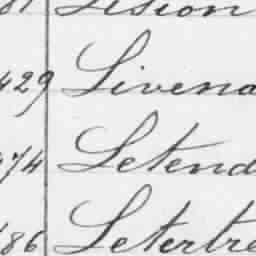 81 Lision
429 Livena
474 Letend
186 Letertre